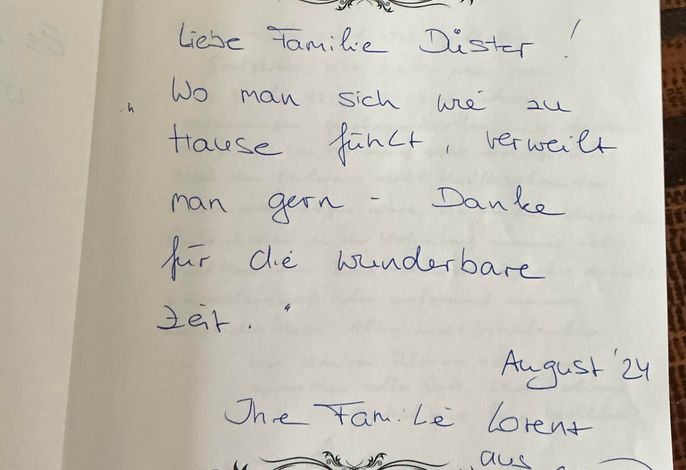 Liebe Familie Düster!
„Wo man sich wie zu
Hause fühlt, verweilt
man gern - Danke
für die wunderbare
Zeit."
August '24
Ihre Familie Lorenz
aus